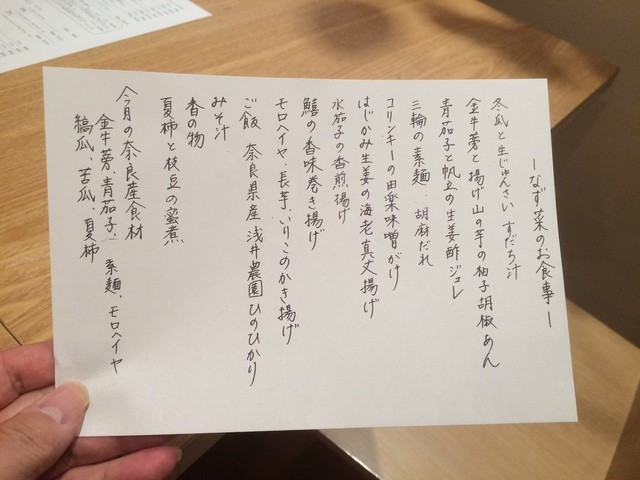 ーなず菜のお食事ー
冬瓜と生じゅんさい すだち汁
金牛蒡と揚げ山の芋の柚子胡椒あん
青茄子と帆立の生姜酢ジュレ
三輪の素麺 胡麻だれ
コリンキーの由楽味噌がけ
はじかみ生姜の海老真丈揚げ
水茄子の香煎揚げ
鱚の香味巻き揚げ
モロヘイヤ・長芋・いりこのかき揚げ
ご飯 奈良県産 浅井農園 ひのひかり
みそ汁
香の物
夏柿と枝豆の蜜煮
今月の奈良産食材
金牛蒡、青茄子、素麺、モロヘイヤ
縞瓜、苦瓜、夏柿